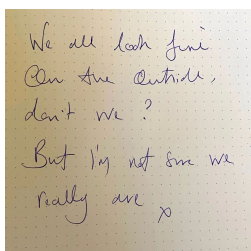 We all look fine
On the Outside,
don't we?
But I'm not sure we
really are x